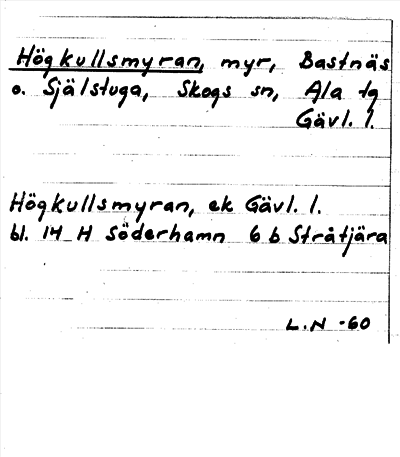 Högkullsmyran, myr, Bastnäs
o. Själstuga, Skogs sn, Ala tg
Gävl. l.
Högkullsmyran, ek Gävl. l.
bl. 14 H Söderhamn 6 b Stråtjära
L.N -60